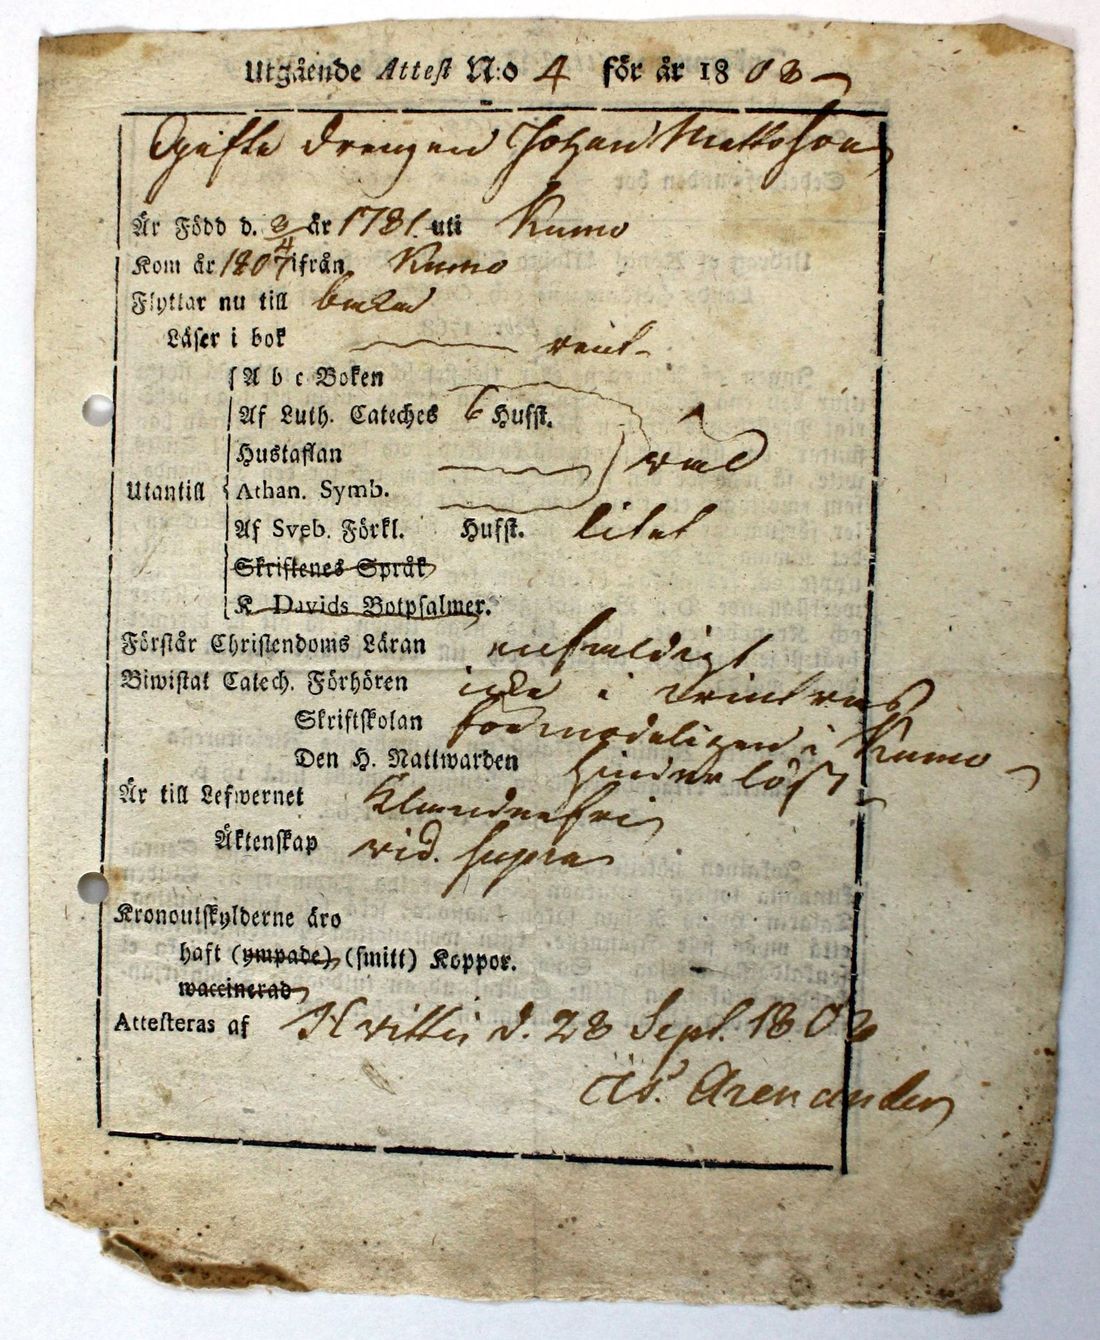 Utgående Attest N:o 4 för år 1808
Ogifte Drengen Johan Mattsson
Är Född d. 3/4 år 1781 uti Kumo
Kom år 1807 ifrån Kumo
Flyttar nu till
Läser i bok rent
A b c Boken
Af Luth. Cateches 6 Hufst.
Hustaflan
Utantill Athan. Symb.
Af Sveb. Förkl. Hufst. litet
Skriftenes Språk
K Davids Botpsalmer.
Förstår Christendoms Läran enfaldigt
Biwistat Catech. Förhören icke i vintras
Skriftskolan förmodeligen i Kumo
Den H. Nattwarden hinderlöst
Är till Lefwernet Klanderfri
Äktenskap vid. supra
Kronoutskylderne äro
haft (ympade) (smitt) Koppor.
waccinerad
Attesteras af Hvittis d. 28 Sept. 1808
As. Arenander